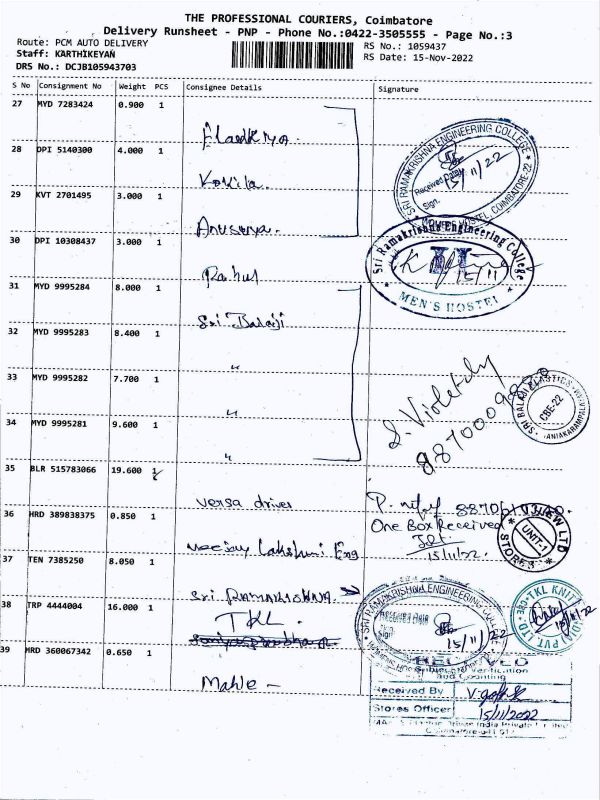 THE PROFESSIONAL COURIERS, Coimbatore
Delivery Runsheet - PNP - Phone No.:0422-3505555 - Page No.:3
Route: PCM AUTO DELIVERY
RS No.: 1059437
Staff: KARTHIKEYAN
RS Date: 15-Nov-2022
DRS No.: DCJB105943703
S No Consignment No Weight PCS Consignee Details Signature
27 MYD 7283424 0.900 1
28 DPI 5140300 4.000 1
Kokila.
29 KVT 2701495 3.000 1
Anusuya.
30 DPI 10308437 3.000 1
Rahul
31 MYD 9995284 8.000 1
Sri Balaji
32 MYD 9995283 8.400 1
"
33 MYD 9995282 7.700 1
"
34 MYD 9995281 9.600 1
"
35 BLR 515783066 19.600 1
versa driver
36 HRD 389838375 0.850 1
Lakshmi Eng
37 TEN 7385250 8.050 1
Sri RAMAKRISHNA.
38 TRP 4444004 16.000 1
TKL
39 HRD 360067342 0.650 1
Mahle -
SRI RAMAKRISHNA ENGINEERING COLLEGE
Received Date
15/11/22
Sign.
HOSTEL, COIMBATORE-22
Sri Ramakrishna Engineering College
II
15/11
MEN'S HOSTEL
S. Violetdy
SRI BALAJI PLASTICS
CBE-22
One Box Received
15/11/22.
LTD
UNIT-1
STORES
SRI RAMAKRISHNA ENGINEERING COLLEGE
Received Date
Sign
15/11/22
TKL KNITS
PVT LTD
CBE
15/11/22
RECEIVED
Subject to Verification
and Counting
Received By
Stores Officer
15/11/2022
India Private Limited